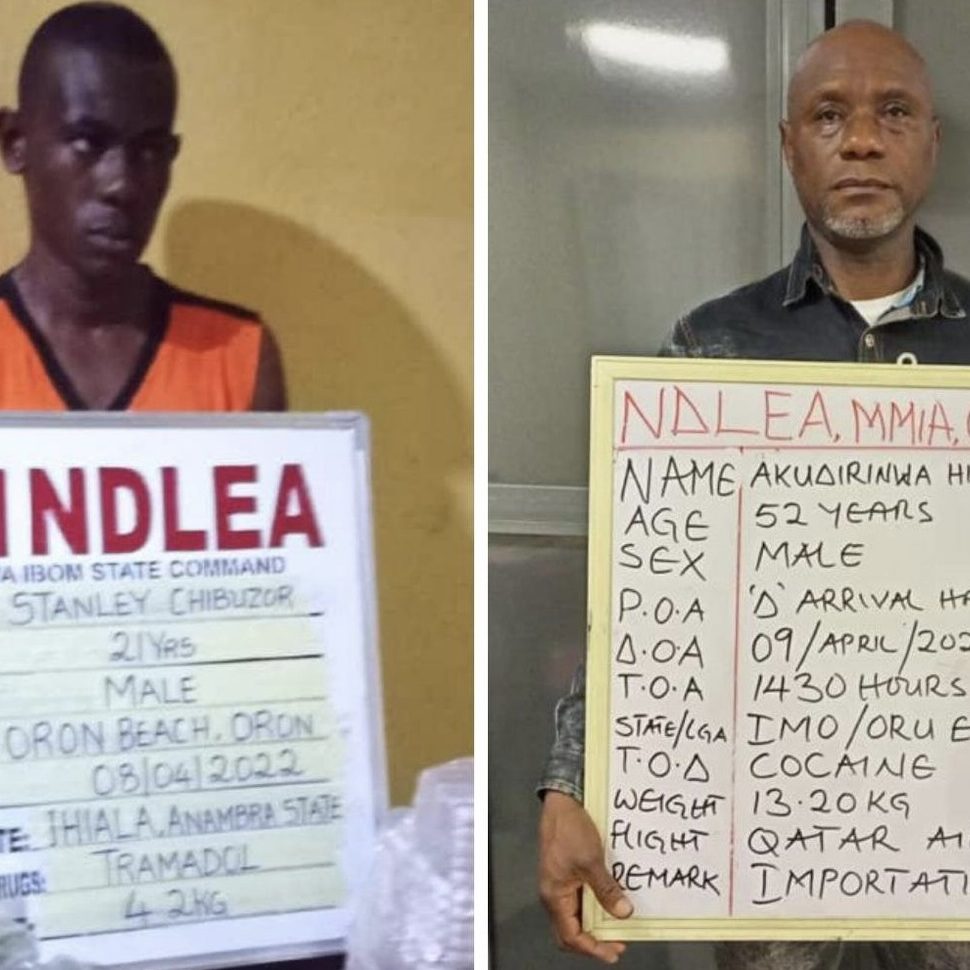 NDLEA
A IBOM STATE COMMAND
STANLEY CHIBUZOR
21 YRS
MALE
ORON BEACH, ORON
08/04/2022
TE: IHIALA, ANAMBRA STATE
RUGS: TRAMADOL
4.2KG
NDLEA, MMIA,
NAME AKUDIRINWA H
AGE 52 YEARS
SEX MALE
P.O.A 'D' ARRIVAL HA
D.O.A 09/APRIL/202
T.O.A 1430 HOURS
STATE/LGA IMO/ORU E
T.O.D COCAINE
WEIGHT 13.20KG
FLIGHT QATAR AI
REMARK IMPORTATI